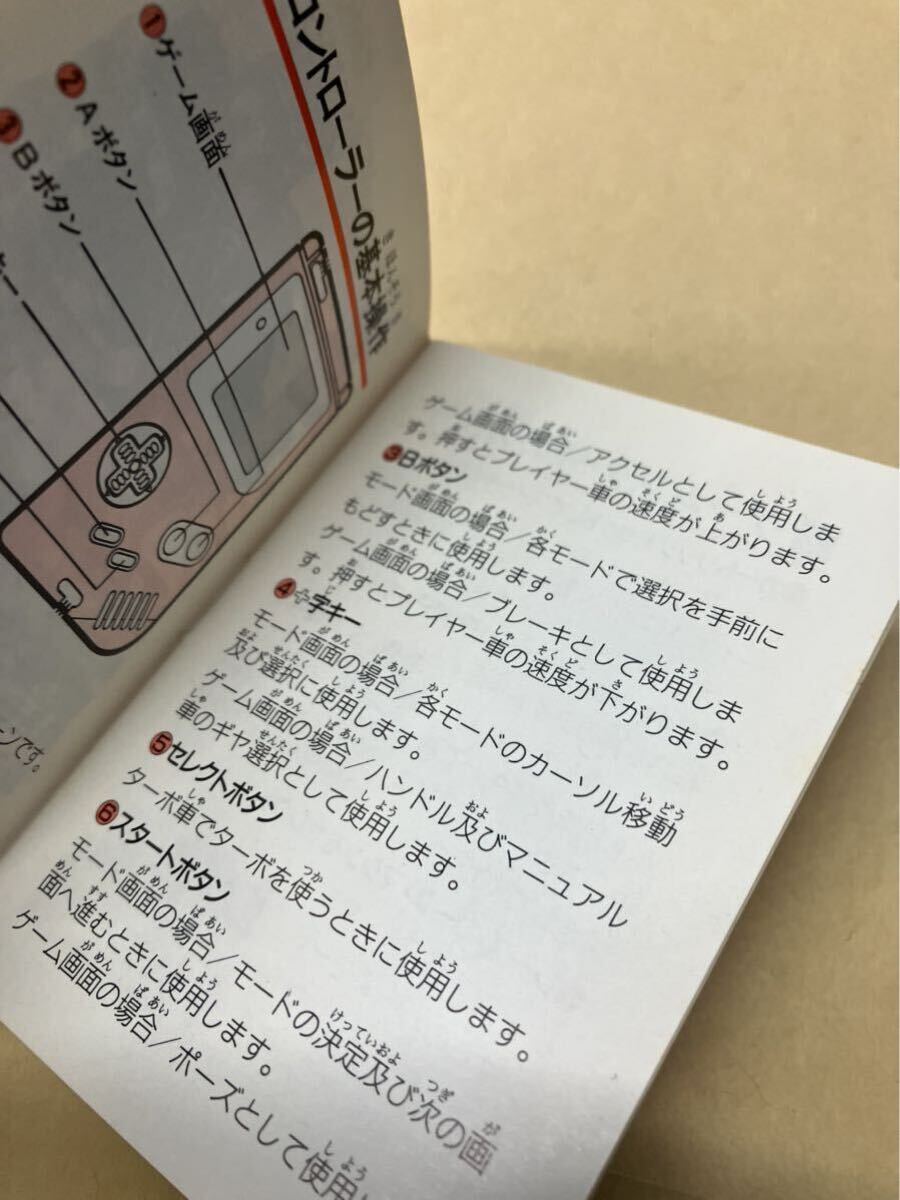 コントローラーの基本操作
①ゲーム画面
②Aボタン
③Bボタン
ンです。
ゲーム画面の場合/アクセルとして使用しま
す。押すとプレイヤー車の速度が上がります。
③Bボタン
モード画面の場合/各モードで選択を手前に
もどすときに使用します。
ゲーム画面の場合/ブレーキとして使用しま
す。押すとプレイヤー車の速度が下がります。
④✛字キー
モード画面の場合/各モードのカーソル移動
及び選択に使用します。
ゲーム画面の場合/ハンドル及びマニュアル
車のギヤ選択として使用します。
⑤セレクトボタン
ターボ車でターボを使うときに使用します。
⑥スタートボタン
モード画面の場合/モードの決定及び次の画
面へ進むときに使用します。
ゲーム画面の場合/ポーズとして使用